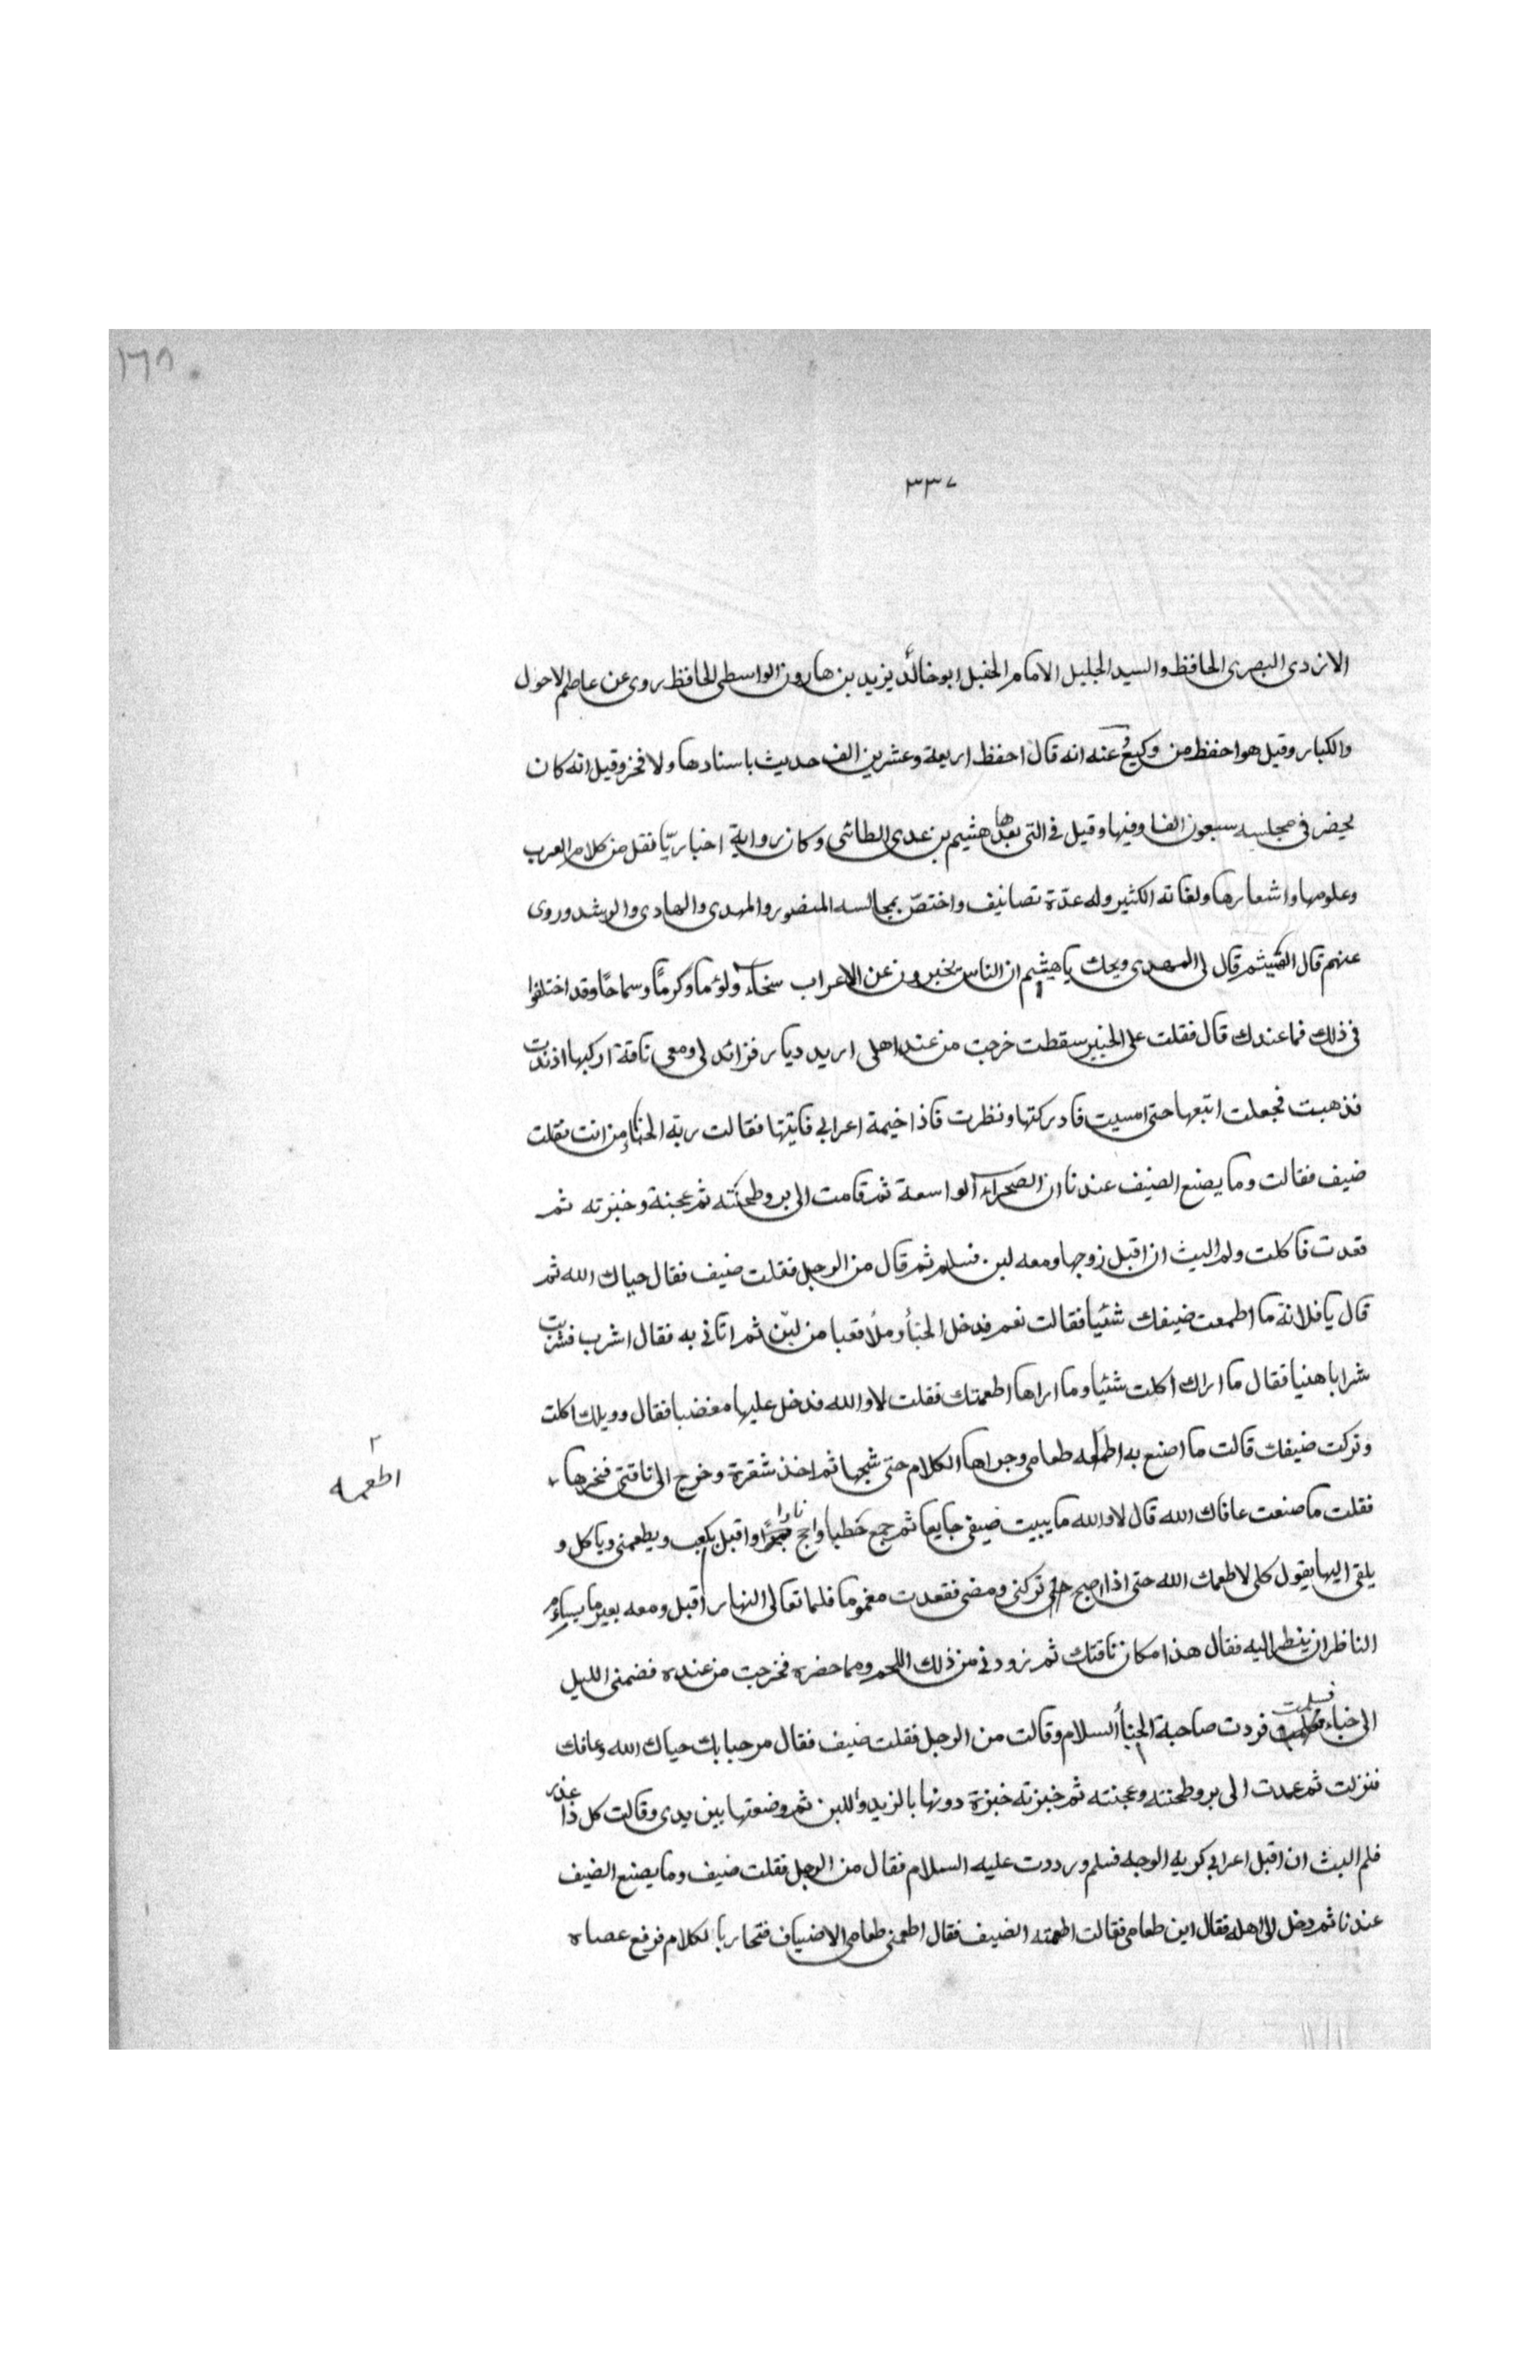 ١٦٨
٣٣٧
الازدى البصرى الحافظ والسيد الجليل الامام الحفيل ابو خالد يزيد بن هارون الواسطى الحافظ روى عن عاصم الاحول
والكبار وقيل هو احفظ من وكيع وعنه انه قال احفظ اربعة وعشرين الف حديث باسنادها ولا فخر وقيل انه كان
يحضر فى مجلسه سبعون الفا وفيها وقيل فى التى بعدها هشيم بن عدى الطائى وكان رواية اخباريّا نقل من كلام العرب
وعلومها واشعارها ولغاته الكثير وله عدّة تصانيف واختصّ بمجالسه المنصور والمهدى والهادى والرشيد وروى
عنهم قال الهيثم قال لى المهدى ويحك يا هيثم ان الناس يخبرون عن الاعراب سخاء ولؤما وكرمًا وسماحًا وقد اختلفوا
فى ذلك فما عندك قال فقلت على الخبير سقطت خرجت من عند اهلى اريد ديار فزائد لى ومعى ناقة اركبها اذ ندت
فذهبت فجعلت اتبعها حتى امسيت فادركتها ونظرت فاذا خيمة اعرابى فاتيتها فقالت ربة الخباء من انت فقلت
ضيف فقالت وما يصنع الضيف عندنا ان الصحراء الواسعة ثم قامت الى بر وطحنته ثم عجنة وخبزته ثم
قعدت فاكلت ولم البث ان اقبل زوجها ومعه لبن فسلم ثم قال من الرجل فقلت ضيف فقال حياك الله ثم
قال يا فلانة ما اطعمت ضيفك شئيا فقالت نعم فدخل الخبأ وملأ قعبا من لبن ثم اتانى به فقال اشرب فشربت
شرابا هنيا فقال ما اراك اكلت شئيا وما اراها اطعمتك فقلت لا والله فدخل عليها مغضبا فقال وويلك اكلت
وتركت ضيفك قالت ما اصنع به اطعمه طعامى وجراها الكلام حتى شجها ثم اخذ شفرة وخرج الى ناقتى فنحرها
٢ اطعمه
فقلت ما صنعت عافاك الله قال لا والله ما يبيت ضيفى جايعا ثم جمع حطبا واجج نارا واقبل يكبب ويطعمنى وياكل و
يلقى اليها يقول كلى لا اطعمك الله حتى اذا اصبح تركنى ومضى فقعدت مغموما فلما تعالى النهار اقبل ومعه بعير ما يسأم
الناظر ان ينظر اليه فقال هذا مكان ناقتك ثم زودنى من ذلك اللحم ومما حضره فخرجت من عنده فضمنى الليل
الى خباء فسلمت فردت صاحبة الخبأ السلام وقالت من الرجل فقلت ضيف فقال مرحبا بك حياك الله وعافك
فنزلت ثم عمدت الى بر وطحنته وعجنته ثم خبزته خبزة دونها بالزبد واللبن ثم وضعتها بين يدى وقالت كل ذا عذر
فلم البث ان اقبل اعرابى كريه الوجه فسلم ورددت عليه السلام فقال من الرجل فقلت ضيف وما يصنع الضيف
عندنا ثم دخل الى اهله فقال اين طعامى فقالت اطعمته الضيف فقال اطعمنى طعامى الاضياف فتحاربا لكلام فرفع عصاه